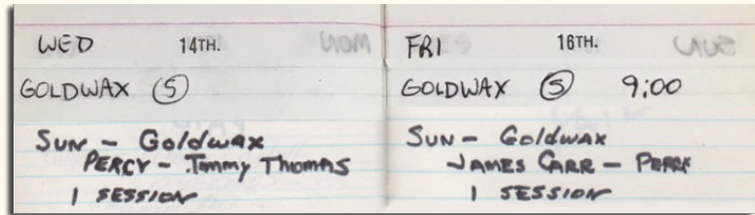 WED 14TH.
GOLDWAX Ⓢ
SUN - Goldwax
PERCY - Tommy Thomas
1 SESSION
FRI 16TH.
GOLDWAX Ⓢ 9:00
SUN - Goldwax
JAMES CARR - PERCY
1 SESSION